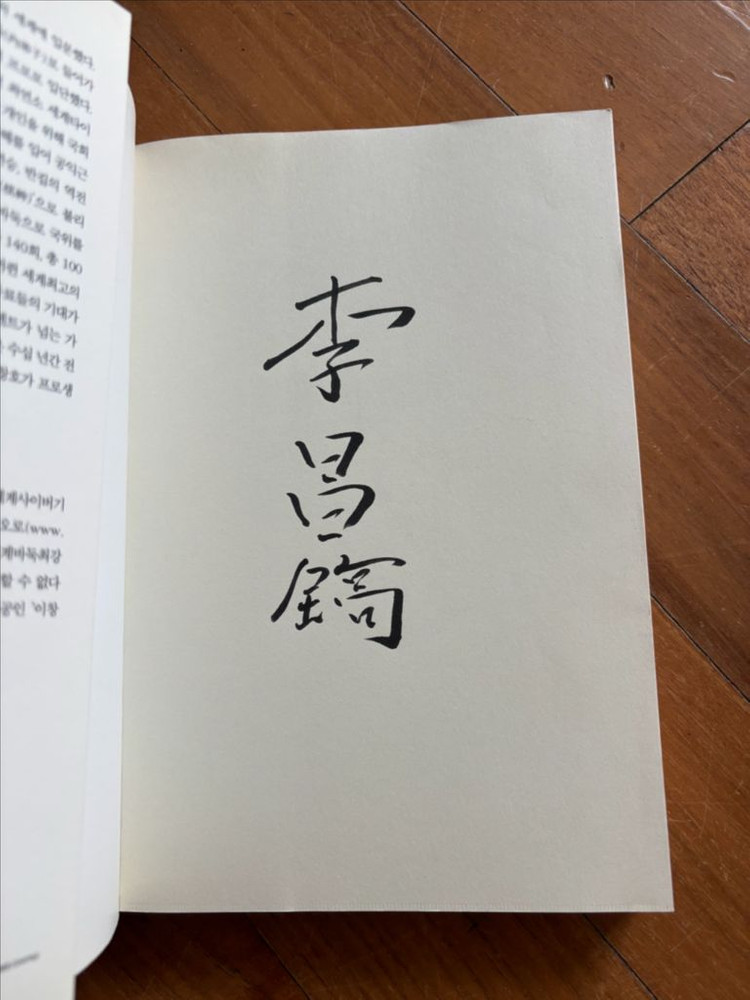 세계에 입문했다.
로 들어가
프로로 입단했다.
최연소 세계타이
개인을 위해 국회
혜를 입어 공익근
반집의 역전
으로 불리
바둑으로 국위를
140회, 총 100
세계최고의
료들의 기대가
넘는 가
수십 년간 전
창호가 프로생
세계사이버기
오로(www.
계바둑최강
할 수 없다
공인 '이창
李
昌
鎬